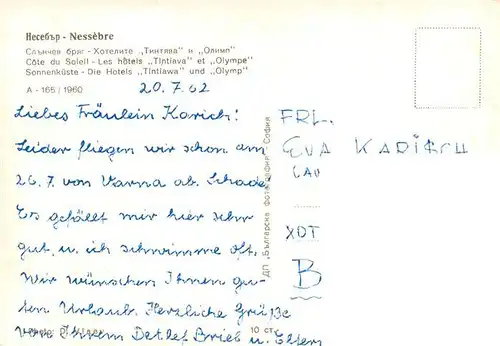 Несебър - Nessèbre
Слънчев бряг - Хотелите „Тинтява" и „Олимп"
Côte du Soleil - Les hôtels „Tintiava" et „Olympe"
Sonnenküste - Die Hotels „Tintiawa" und „Olymp"
A - 165 / 1960
20.7.62
Liebes Fräulein Karich!
Leider fliegen wir schon am
26.7. von Varna ab. Schade!
Es gefällt mir hier sehr
gut, u. ich schwimme oft.
Wir wünschen Ihnen gu-
ten Urlaub. Herzliche Grüße
von Ihrem Detlef Brieb u. Eltern
FRL.
EVA
XDT
B
ДП „Българска фотография" - София
10 ст.